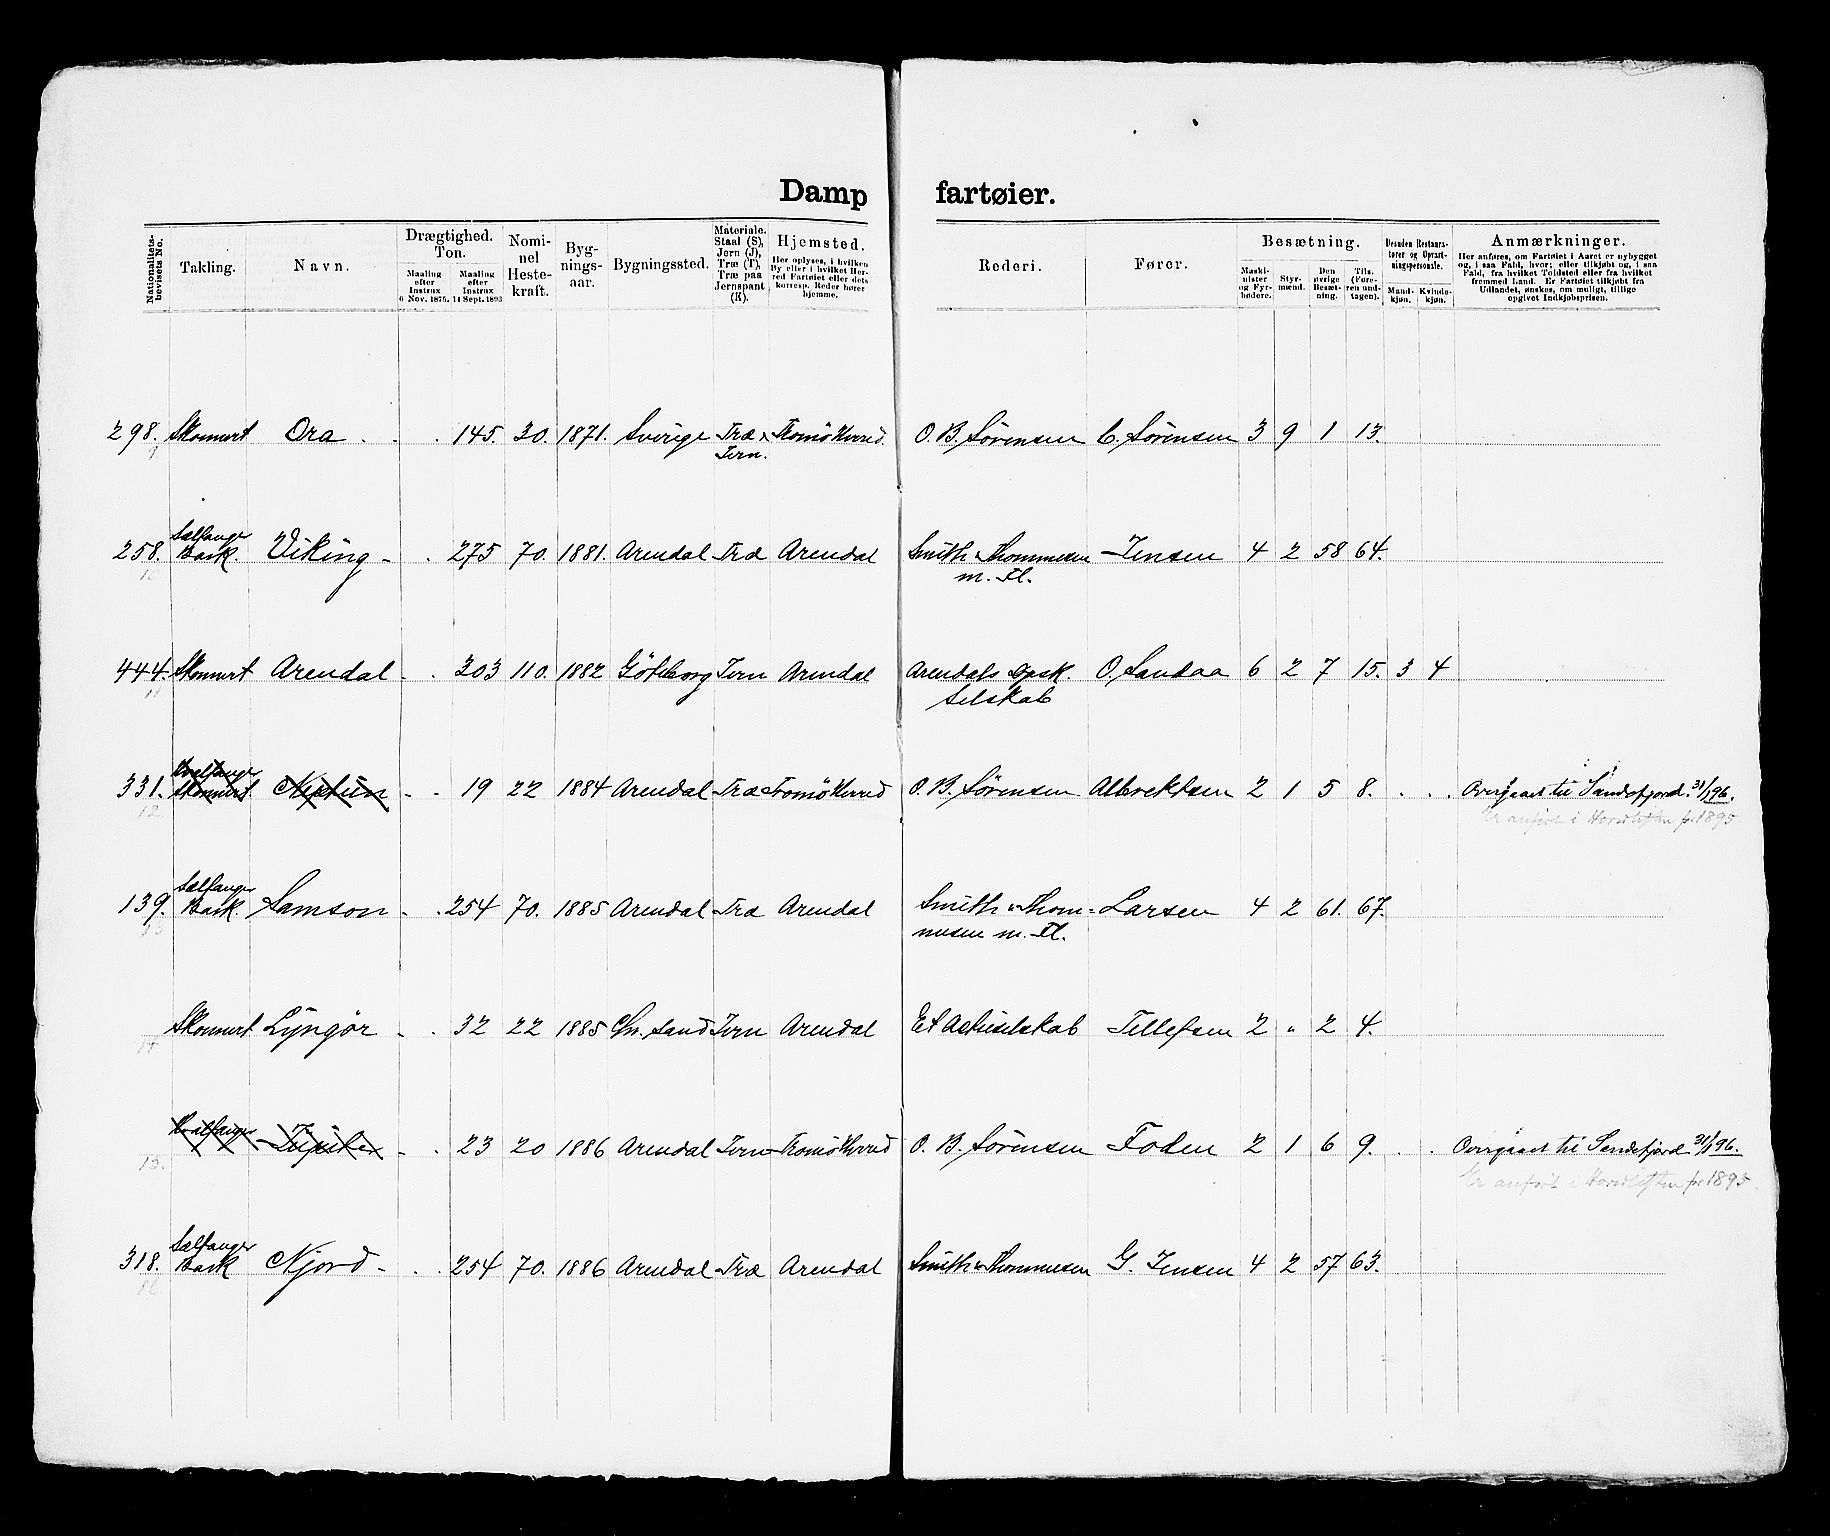 Damp fartøier.
Nationalitets-bevisets No. Takling. Navn. Drægtighed. Ton. Maaling efter Instrux 6 Nov. 1875. Maaling efter Instrux 14 Sept. 1893 Nominel Hestekraft. Bygningsaar. Bygningssted. Materiale. Staal (S), Jern (J), Træ (T), Træ paa Jernspant (K). Hjemsted. Her oplyses, i hvilken By eller i hvilket Herred Fartøiet eller dets korresp. Reder hører hjemme. Rederi. Fører. Besætning. Maskinister og Fyrbødere. Styrmænd. Den øvrige Besætning. Tils. (Føreren undtagen). Desuden Restauratører og Opvartningspersonale. Mandkjøn. Kvindekjøn. Anmærkninger. Her anføres, om Fartøiet i Aaret er nybygget og, i saa Fald, hvor; eller tilkjøbt og, i saa Fald, fra hvilket Toldsted eller fra hvilket fremmed Land. Er Fartøiet tilkjøbt fra Udlandet, ønskes, om muligt, tillige opgivet Indkjøbsprisen.
298. Skonnert Ora . . . 145. 30. 1871. Sverige Træ & Tromö Herred. O. B. Sörensen C. Sörensen 3 9 1 13.
9 Jern.
Sælfanger
258. Bark. Viking - . 275 70. 1881. Arendal Træ Arendal Smith & Thommesen Jensen 4 2 58 64.
10 m. Fl.
444. Skonnert Arendal - . 303 110. 1882 Göteborg Jern Arendal Arendals Dpsk. O. Sandaa 6 2 7 15. 3 4
11 Selskab
Hvalfanger
331. Skonnert Neptun - . 19 22 1884 Arendal Træ Tromö Herred O. B. Sörensen Albrektsen 2 1 5 8. . . . Overgaaet til Sandefjord. 31/1 96.
12 Er anført i Hovedlisten for 1895
Sælfanger
139. Bark. Samson - . 254 70. 1885 Arendal Træ Arendal Smith & Thom- Larsen 4 2 61. 67.
13 mesen m. Fl.
Skonnert Lyngør - . 32 22 1885 Chr. sand Jern Arendal Et Actieselskab Tellefsen 2 " 2 4.
14
Hvalfanger Jupiter - . 23 20 1886 Arendal Jern Tromö Herred O. B. Sörensen Foden 2 1 6 9. . . Overgaaet til Sandefjord 31/1 96.
15. Er anført i Hovedlisten for 1895.
Sælfanger
318. Bark Njord - . . 254 70. 1886 Arendal Træ Arendal Smith & Thommesen G. Jensen 4 2 57 63.
16